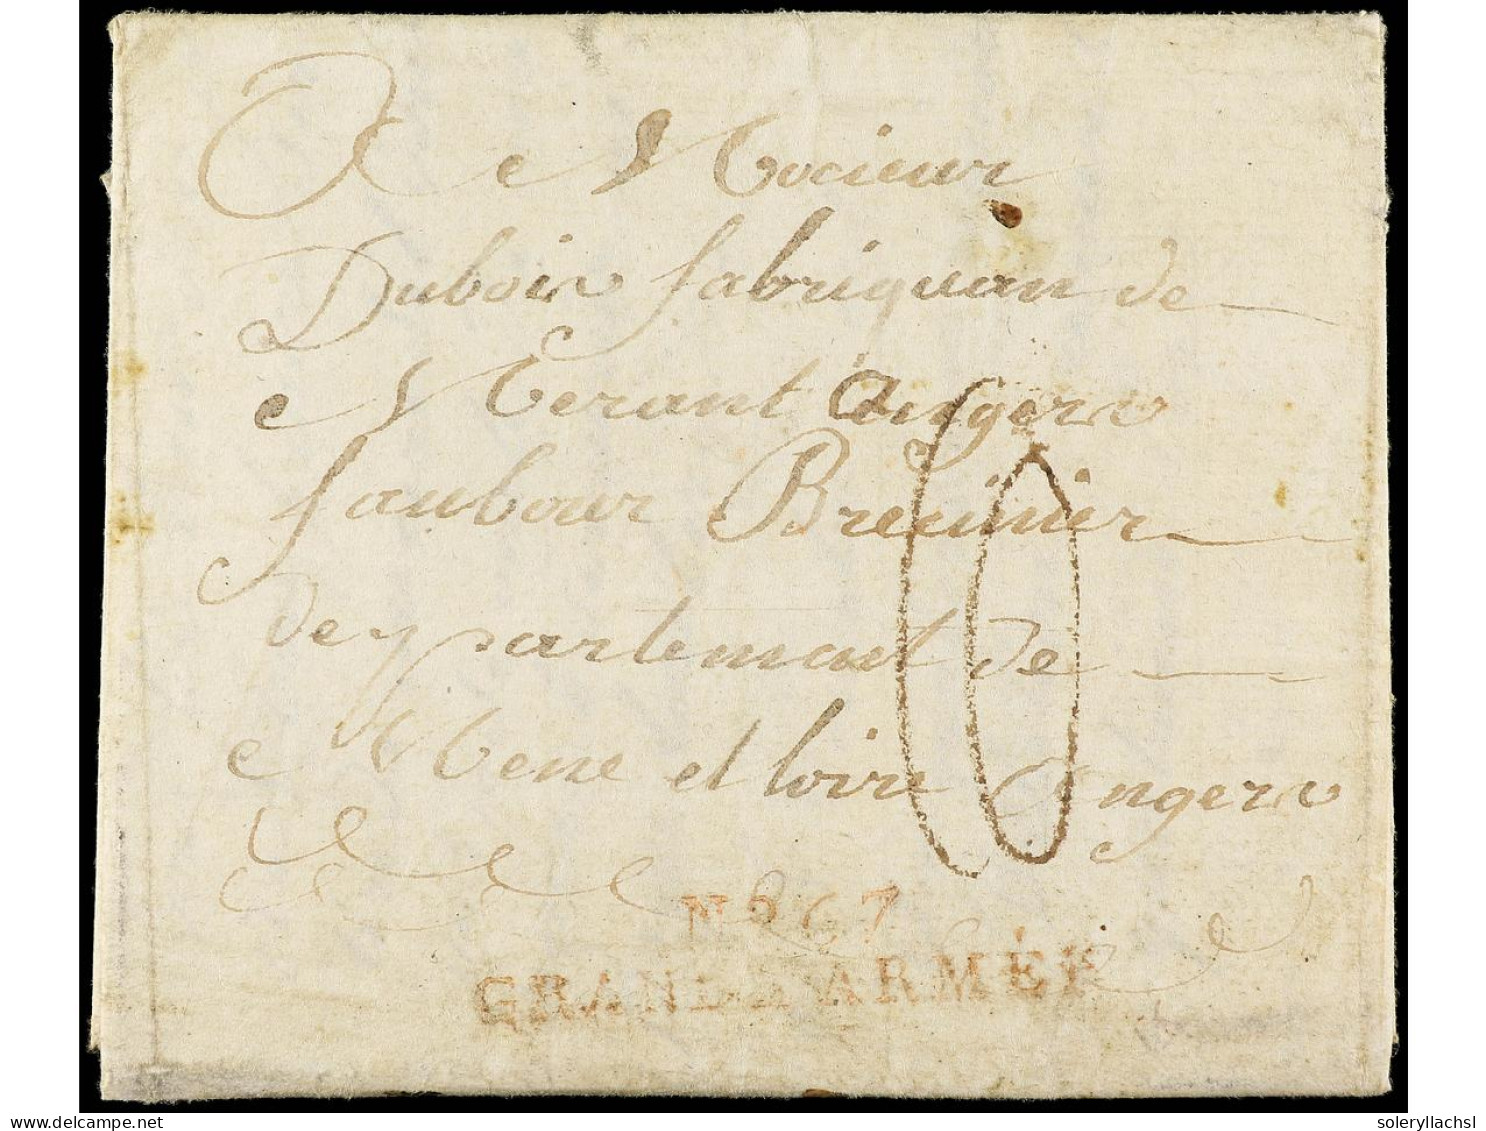 A Mocieur
Dubois fabriquan de
Merant Angers
faubour Bresinier
departemant de
Mene et loire Angers
No 67
GRANDE ARMÉE
delcampe.net
soleryllachsl